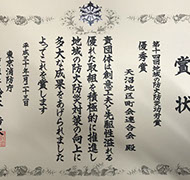 賞状
第十四回地域の防火防災功労賞
優秀賞
天沼地区町会連合会 殿
貴団体は創意工夫と先駆性溢れる
優れた取組を積極的に推進し
地域の防火防災対策の向上に
多大な成果をあげられました
よってこれを賞します
平成三十年二月二十三日
東京消防庁